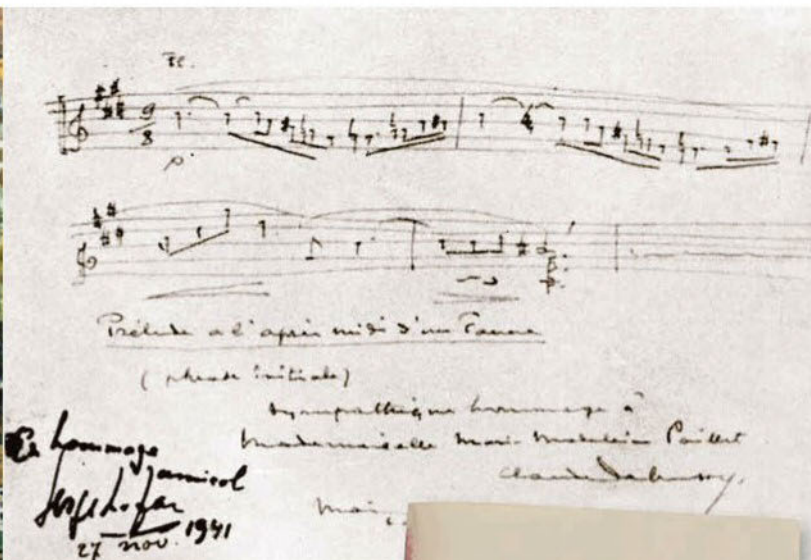 Fl.
9
8
p
Prélude à l'après midi d'un Faune
(phrase initiale)
sympathique hommage à
Mademoiselle Marie Madeleine Paillet
Claude Debussy.
En hommage
amical
Serge Lifar
27 nov. 1941